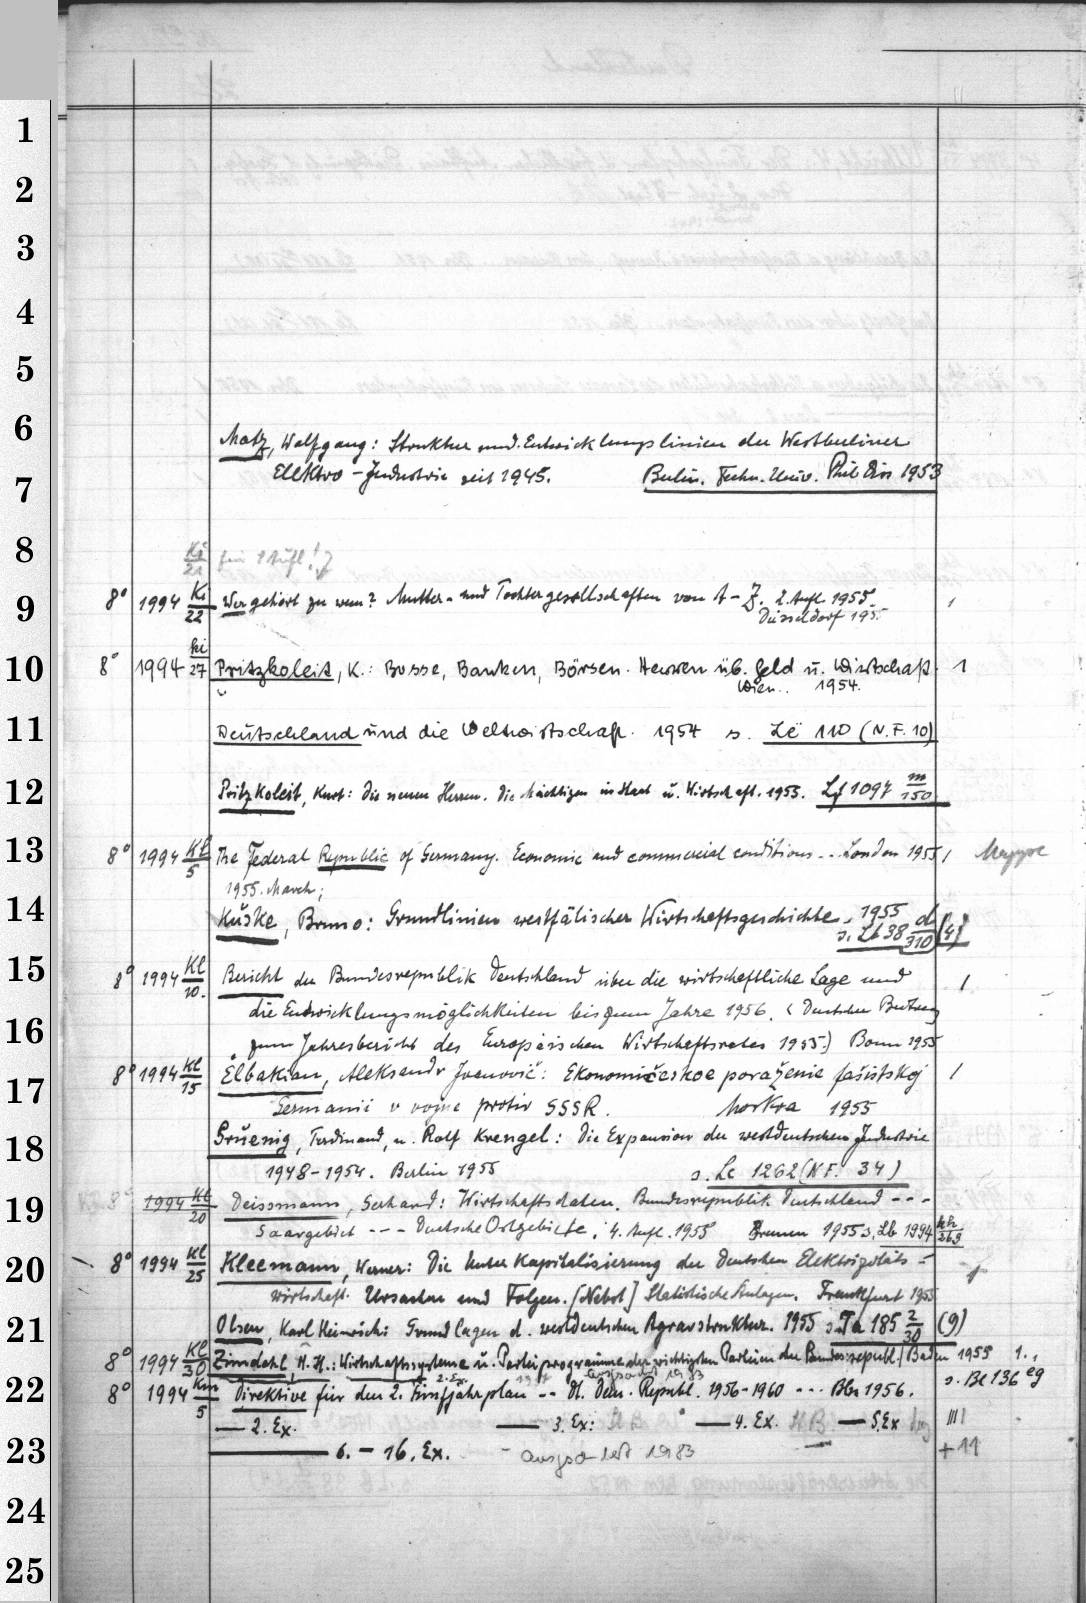 1
2
3
4
5
6
Matz, Wolfgang: Struktur und Entwicklungslinien der Westberliner
7
Elektro-Industrie seit 1945. Berlin. Techn. Univ. Phil Diss 1953
8
Ki/21 1 Aufl!
9
8° 1994 Ki/22 Wer gehört zu wem? Mutter- und Tochtergesellschaften von A-Z. 2. Aufl. 1955. 1
Düsseldorf 195
10
8° 1994 Ki/27 Pritzkoleit, K.: Bosse, Banken, Börsen. Herren üb. Geld u. Wirtschaft. 1
Wien.. 1954.
11
Deutschland und die Weltwirtschaft. 1954 s. Lc 110 (N.F. 10)
12
Pritzkoleit, Kurt: Die neuen Herren. Die Mächtigen in Staat u. Wirtschaft. 1955. Lf 1097 m/150
13
8° 1994 Kl/5 The Federal Republic of Germany. Economic and commercial conditions... London 1955 1
1955. March;
14
Kuske, Bruno: Grundlinien westfälischer Wirtschaftsgeschichte. 1955
s. Lb 38 d/310 (4)
15
8° 1994 Kl/10. Bericht der Bundesrepublik Deutschland über die wirtschaftliche Lage und 1
die Entwicklungsmöglichkeiten bis zum Jahre 1956. (Deutscher Beitrag
16
zum Jahresbericht des Europäischen Wirtschaftsrates 1955.) Bonn 1955
17
8° 1994 Kl/15 Elbakian, Aleksandr Ivanovič: Ekonomičeskoe poraženie fašistskoj 1
Germanii v vojne protiv SSSR. Moskva 1955
18
Gruenig, Ferdinand, u. Rolf Krengel: Die Expansion der westdeutschen Industrie
1948-1954. Berlin 1955 s. Lc 1262 (N.F. 34)
19
8° 1994 Kl/20 Deissmann, Gerhard: Wirtschaftsdaten. Bundesrepublik Deutschland ---
Saargebiet --- Deutsche Ostgebiete. 4. Aufl. 1955 Bremen 1955 s. Lb 1994 kh/269
20
8° 1994 Kl/25 Kleemann, Werner: Die Unterkapitalisierung der deutschen Elektrizitäts- 1
wirtschaft. Ursachen und Folgen. [Nebst] Statistische Anlagen. Frankfurt 1955
21
Olsen, Karl Heinrich: Grundlagen d. westdeutschen Agrarstruktur. 1955 s. Ta 185 2/30 (9)
8° 1994 Kl/30 Zimdahl, H. H.: Wirtschaftssysteme u. Parteiprogramme der wichtigsten Parteien der Bundesrepubl. Baden 1955 1.
22
8° 1994 Km/5 Direktive für den 2. Fünfjahrplan -- Dt. Dem. Republ. 1956-1960 --- Bln 1956. s. Bc 136 eg
— 2. Ex. — 3. Ex: — 4. Ex. HB. — 5. Ex III
23
— 6. - 16. Ex. - ausgesondert 1983 + 11
24
25